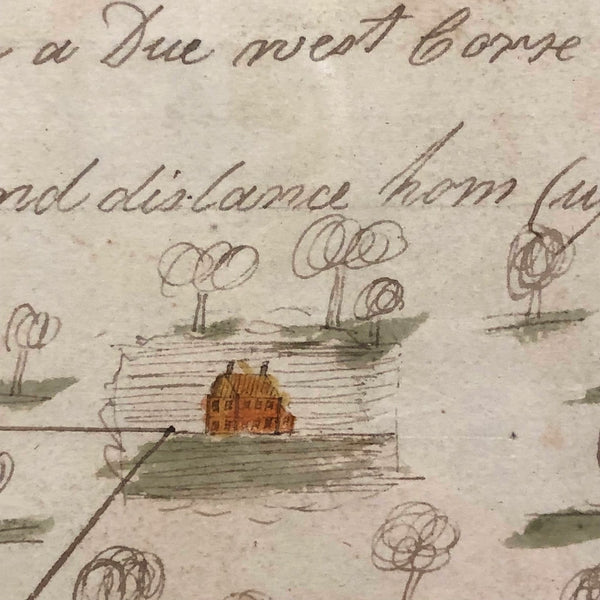 a Due west Corse
nd distance hom